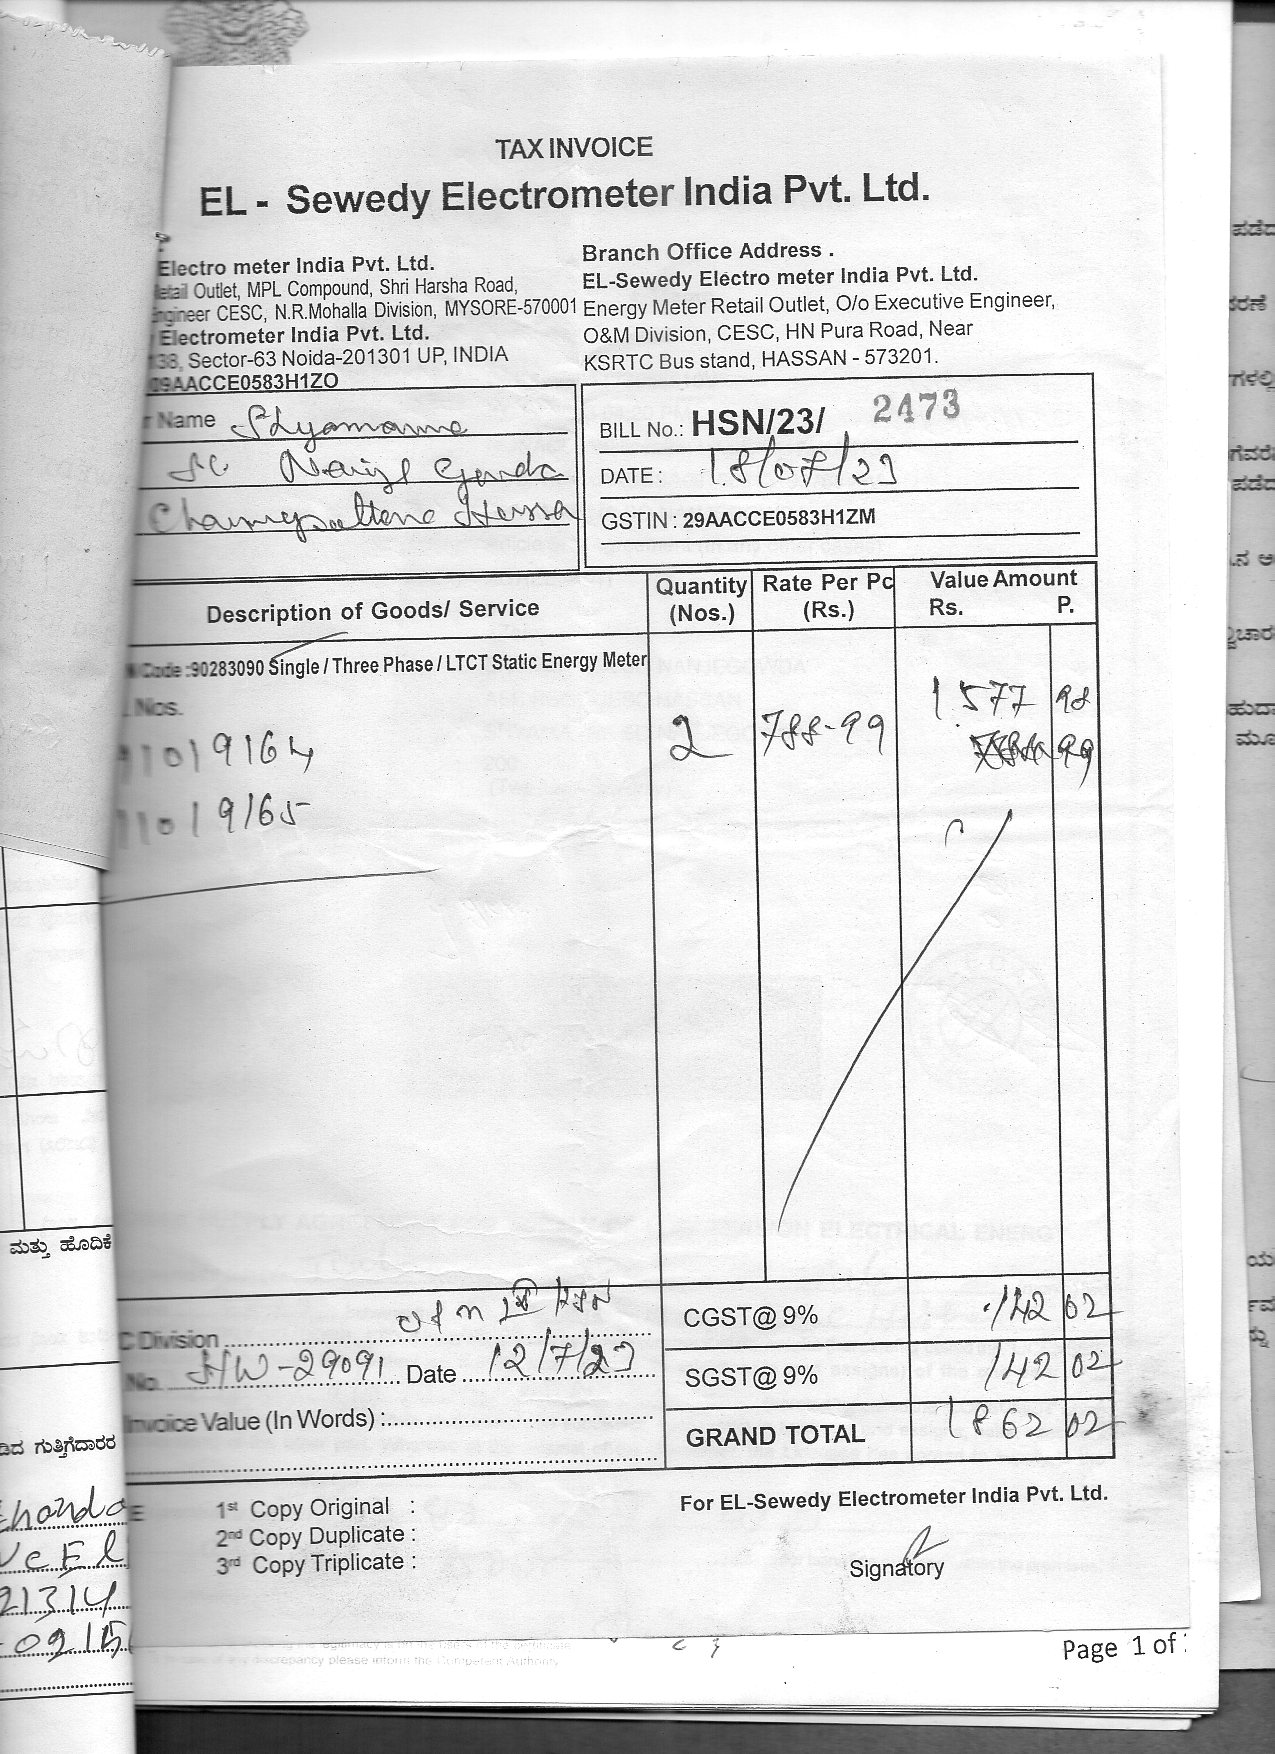 TAX INVOICE
EL - Sewedy Electrometer India Pvt. Ltd.
Electro meter India Pvt. Ltd.
Retail Outlet, MPL Compound, Shri Harsha Road,
CESC, N.R.Mohalla Division, MYSORE-570001
Electrometer India Pvt. Ltd.
Sector-63 Noida-201301 UP, INDIA
29AACCE0583H1ZO
Branch Office Address .
EL-Sewedy Electro meter India Pvt. Ltd.
Energy Meter Retail Outlet, O/o Executive Engineer,
O&M Division, CESC, HN Pura Road, Near
KSRTC Bus stand, HASSAN - 573201.
Name Shyamanna
BILL No.: HSN/23/ 2473
DATE : 18/07/23
GSTIN : 29AACCE0583H1ZM
Description of Goods/ Service
Quantity (Nos.)
Rate Per Pc (Rs.)
Value Amount
Rs. P.
Code :90283090 Single / Three Phase / LTCT Static Energy Meter
Nos.
11019164
11019165
2 788-99 1577 98
99
C Division
No. HW-29091 Date 12/7/23
Invoice Value (In Words) :
CGST@ 9% 142 02
SGST@ 9% 142 02
GRAND TOTAL 1862 02
1st Copy Original :
2nd Copy Duplicate :
3rd Copy Triplicate :
For EL-Sewedy Electrometer India Pvt. Ltd.
Signatory
Page 1 of
ಮತ್ತು ಹೊದಿಕೆ
ಗುತ್ತಿಗೆದಾರರ
21314